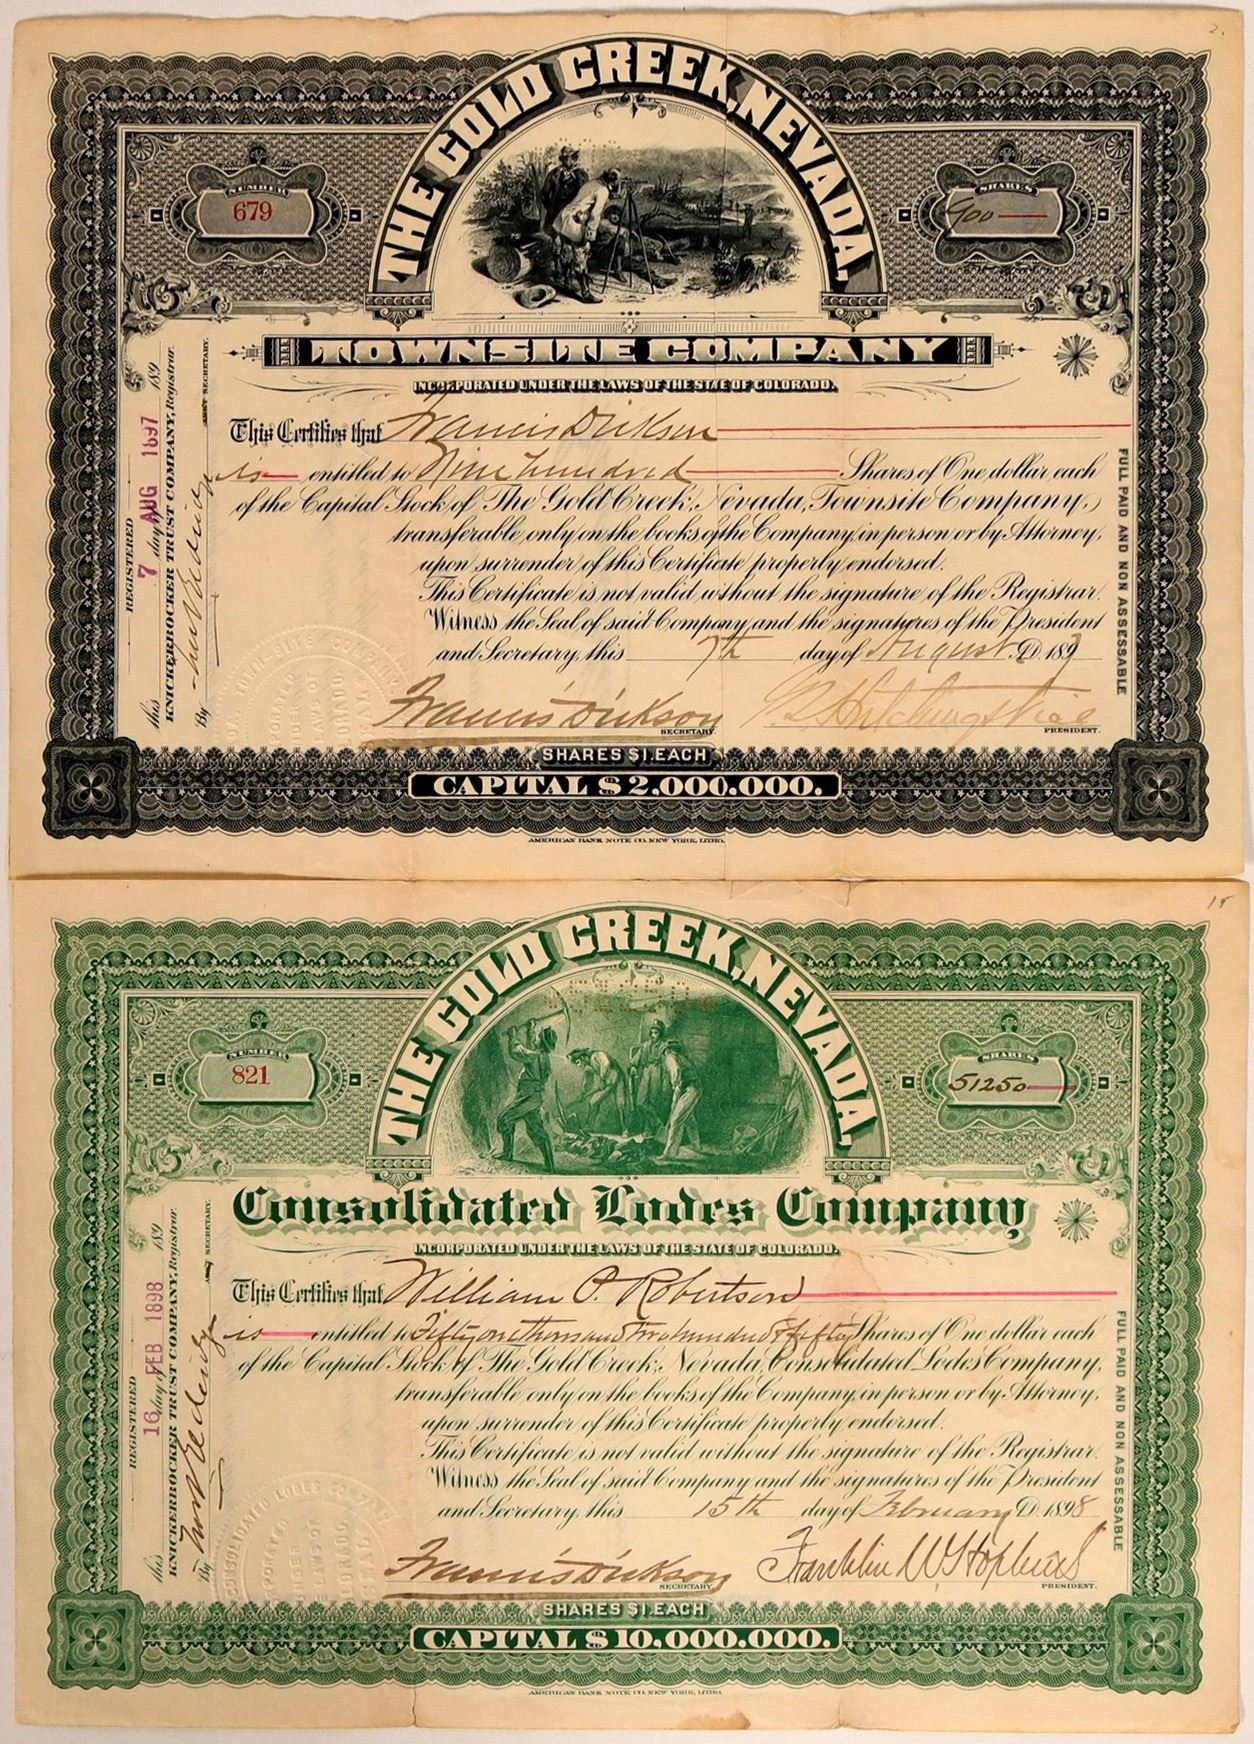 2.
THE GOLD CREEK, NEVADA.
NUMBER
679
SHARES
900
TOWNSITE COMPANY
INCORPORATED UNDER THE LAWS OF THE STATE OF COLORADO.
This Certifies that Francis Dickson
is entitled to Nine hundred Shares of One dollar each
of the Capital Stock of The Gold Creek, Nevada, Townsite Company,
transferable only on the books of the Company in person or by Attorney,
upon surrender of this Certificate properly endorsed.
This Certificate is not valid without the signature of the Registrar.
Witness the Seal of said Company and the signatures of the President
and Secretary, this 7th day of August A.D. 1897
Francis Dickson
SECRETARY.
Vice
PRESIDENT.
REGISTERED
this 7 day of AUG 1897 189
KNICKERBOCKER TRUST COMPANY, Registrar.
By
ASST SECRETARY.
FULL PAID AND NON ASSESSABLE
SHARES $1. EACH
CAPITAL $2,000,000.
AMERICAN BANK NOTE CO. NEW YORK, LITHO.
15
THE GOLD CREEK, NEVADA.
NUMBER
821
SHARES
51250
Consolidated Lodes Company
INCORPORATED UNDER THE LAWS OF THE STATE OF COLORADO.
This Certifies that William P. Robertson
is entitled to Fifty one thousand two hundred & fifty Shares of One dollar each
of the Capital Stock of The Gold Creek, Nevada, Consolidated Lodes Company,
transferable only on the books of the Company in person or by Attorney,
upon surrender of this Certificate properly endorsed.
This Certificate is not valid without the signature of the Registrar.
Witness the Seal of said Company and the signatures of the President
and Secretary, this 15th day of February A.D. 1898
Francis Dickson
SECRETARY.
Franklin W. Hopkins
PRESIDENT.
REGISTERED
this 16 day of FEB 1898 189
KNICKERBOCKER TRUST COMPANY, Registrar.
By
ASST SECRETARY.
FULL PAID AND NON ASSESSABLE
CONSOLIDATED LODES COMPANY
SHARES $1. EACH
CAPITAL $10,000,000.
AMERICAN BANK NOTE CO. NEW YORK, LITHO.